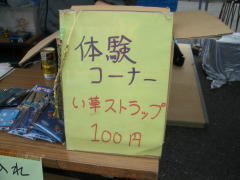 体験
コーナー
い草ストラップ
100円
入れ